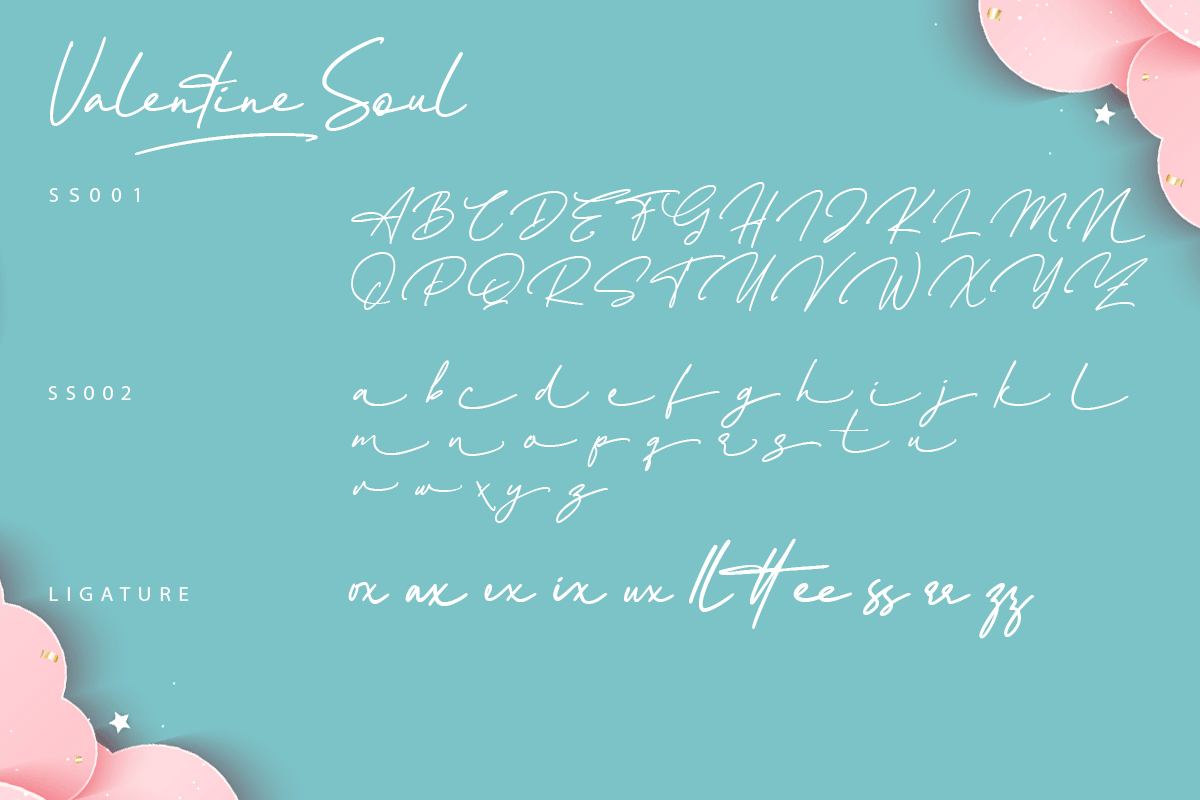 Valentine Soul
SS001
A B C D E F G H I J K L M N
O P Q R S T U V W X Y Z
SS002
a b c d e f g h i j k l
m n o p q r s t u
v w x y z
LIGATURE
ox ax ex ix ux ll tt ee ss rr zz